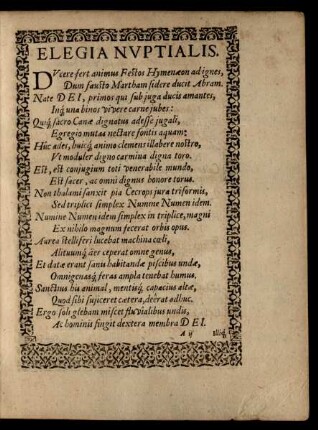 ELEGIA NVPTIALIS.
DVcere fert animus Festos Hymenæon ad ignes,
Dum fausto Martham sidere ducit Abram.
Nate DEI, primos qui sub juga ducis amantes,
Inq́; una binos vivere carne jubes:
Quiq́; sacro Canæ dignatus adesse jugali,
Egregio mutas nectare fontis aquam:
Húc ades, huicq́; animo clemens illabere nostro,
Vt moduler digno carmina digna toro.
Est, est conjugium toti venerabile mundo,
Est sacer, ac omni dignus honore torus.
Non thuleni sanxit pia Cecrops jura triformis,
Sed triplici simplex Numine Numen idem.
Numine Numen idem simplex in triplice, magni
Ex nihilo magnum fecerat orbis opus.
Aurea stelliferi lucebat machina cœli,
Alituumq́; äer ceperat omne genus,
Et datæ erant sanis habitandæ piscibus undæ,
Omnigenasq́; feras ampla tenebat humus.
Sanctius his animal, mentisq́; capacius altæ,
Quod sibi sujiceret cætera, deërat adhuc.
Ergo soli glebam miscet fluvialibus undis,
Ac hominis fingit dextera membra DEI.
A ij
Illiq́;